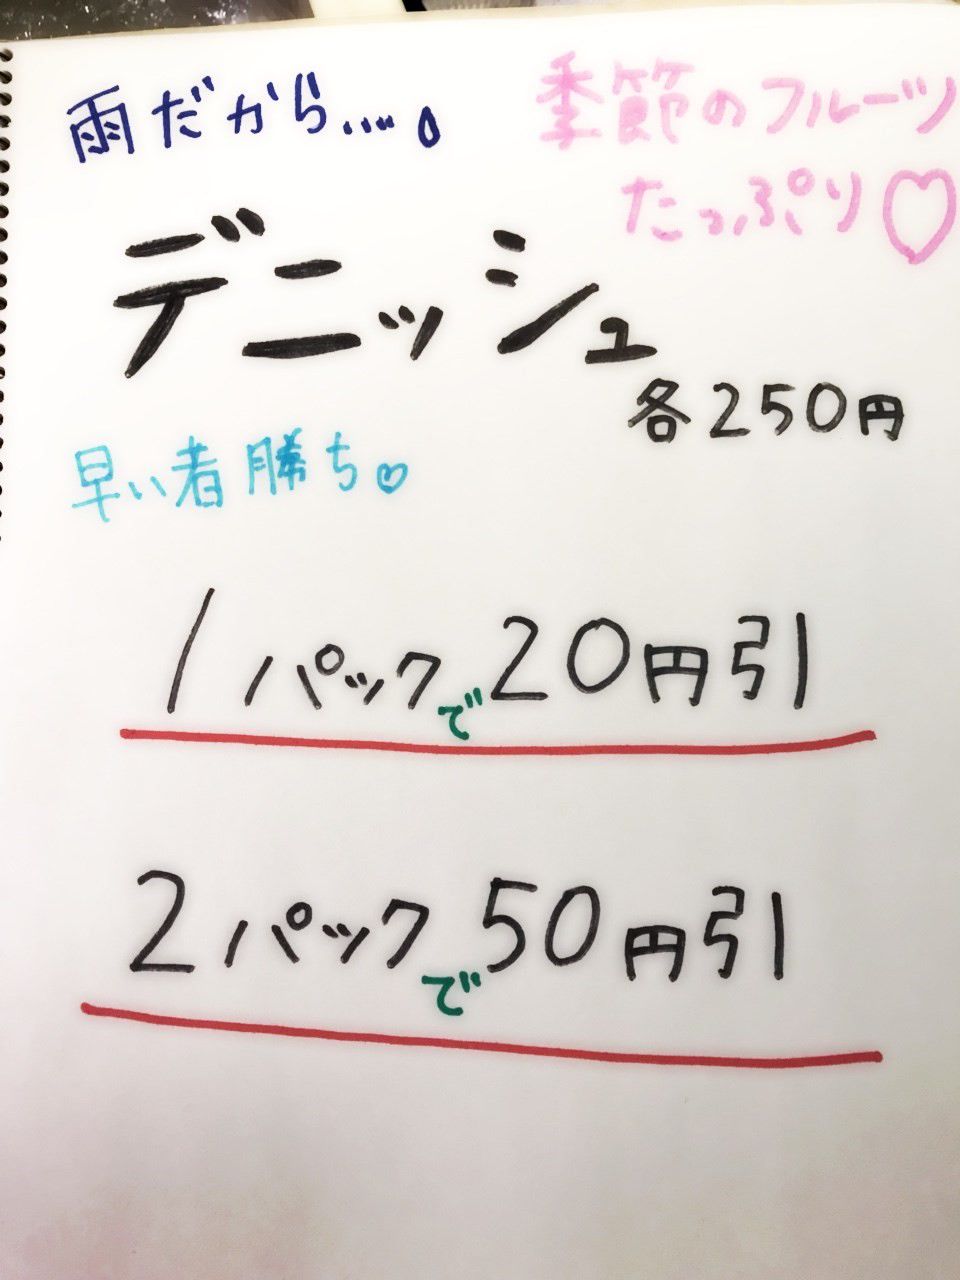 雨だから....。
季節のフルーツ
たっぷり♡
デニッシュ
各250円
早い者勝ち♡
1パックで20円引
2パックで50円引